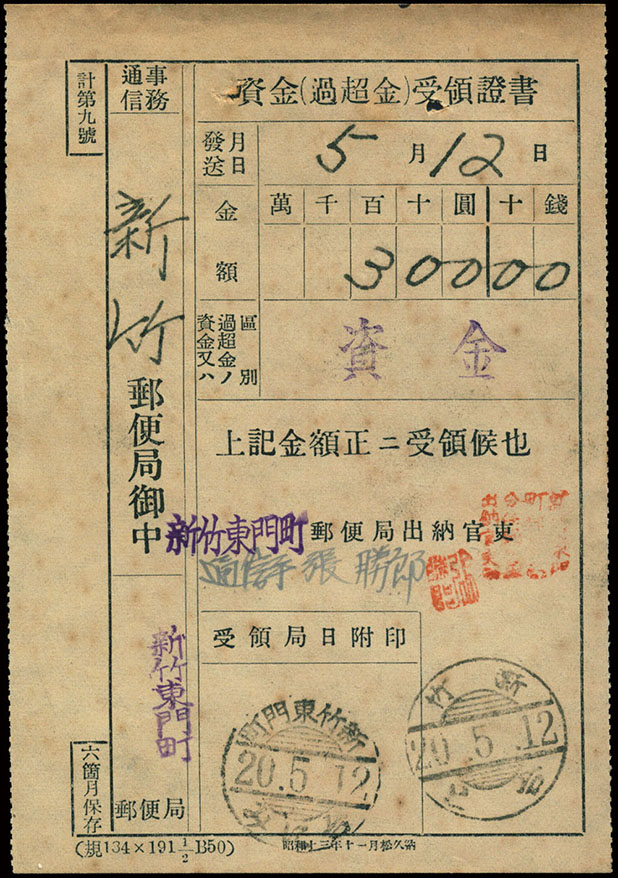 計第九號
通信事務
資金(過超金)受領證書
發送月日 5月12日
金額
萬千百十圓十錢
30000
資金又ハ過超金ノ區別
資金
上記金額正ニ受領候也
新竹東門町郵便局出納官吏
通信手 張勝郎
受領局日附印
新竹東門町
20.5.12
新竹
20.5.12
新竹郵便局御中
新竹東門町
郵便局
六箇月保存
(規134×191½B50)
昭和十三年十一月松久納